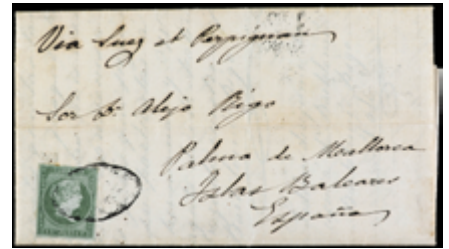 Via Suez et Perpignan
Sor Dn Alejo Rigo
Palma de Mallorca
Islas Baleares
España